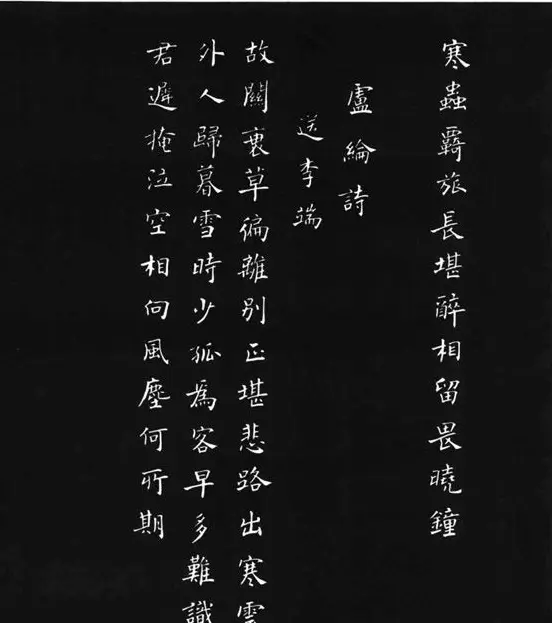 寒蟲羇旅長堪醉相留畏曉鐘
盧綸詩
送李端
故關衰草偏離別正堪悲路出寒雲
外人歸暮雪時少孤為客早多難識
君遲掩泣空相向風塵何所期